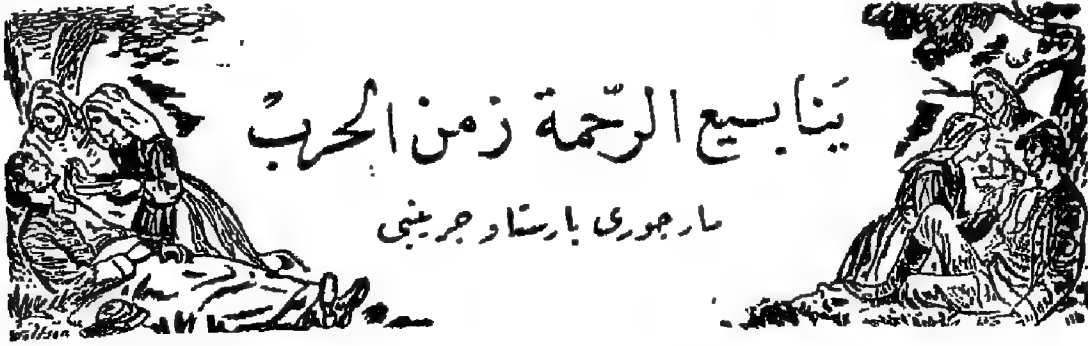 يَنابيع الرّحمة زمن الحرب
مارجورى بارستاو جرينبى